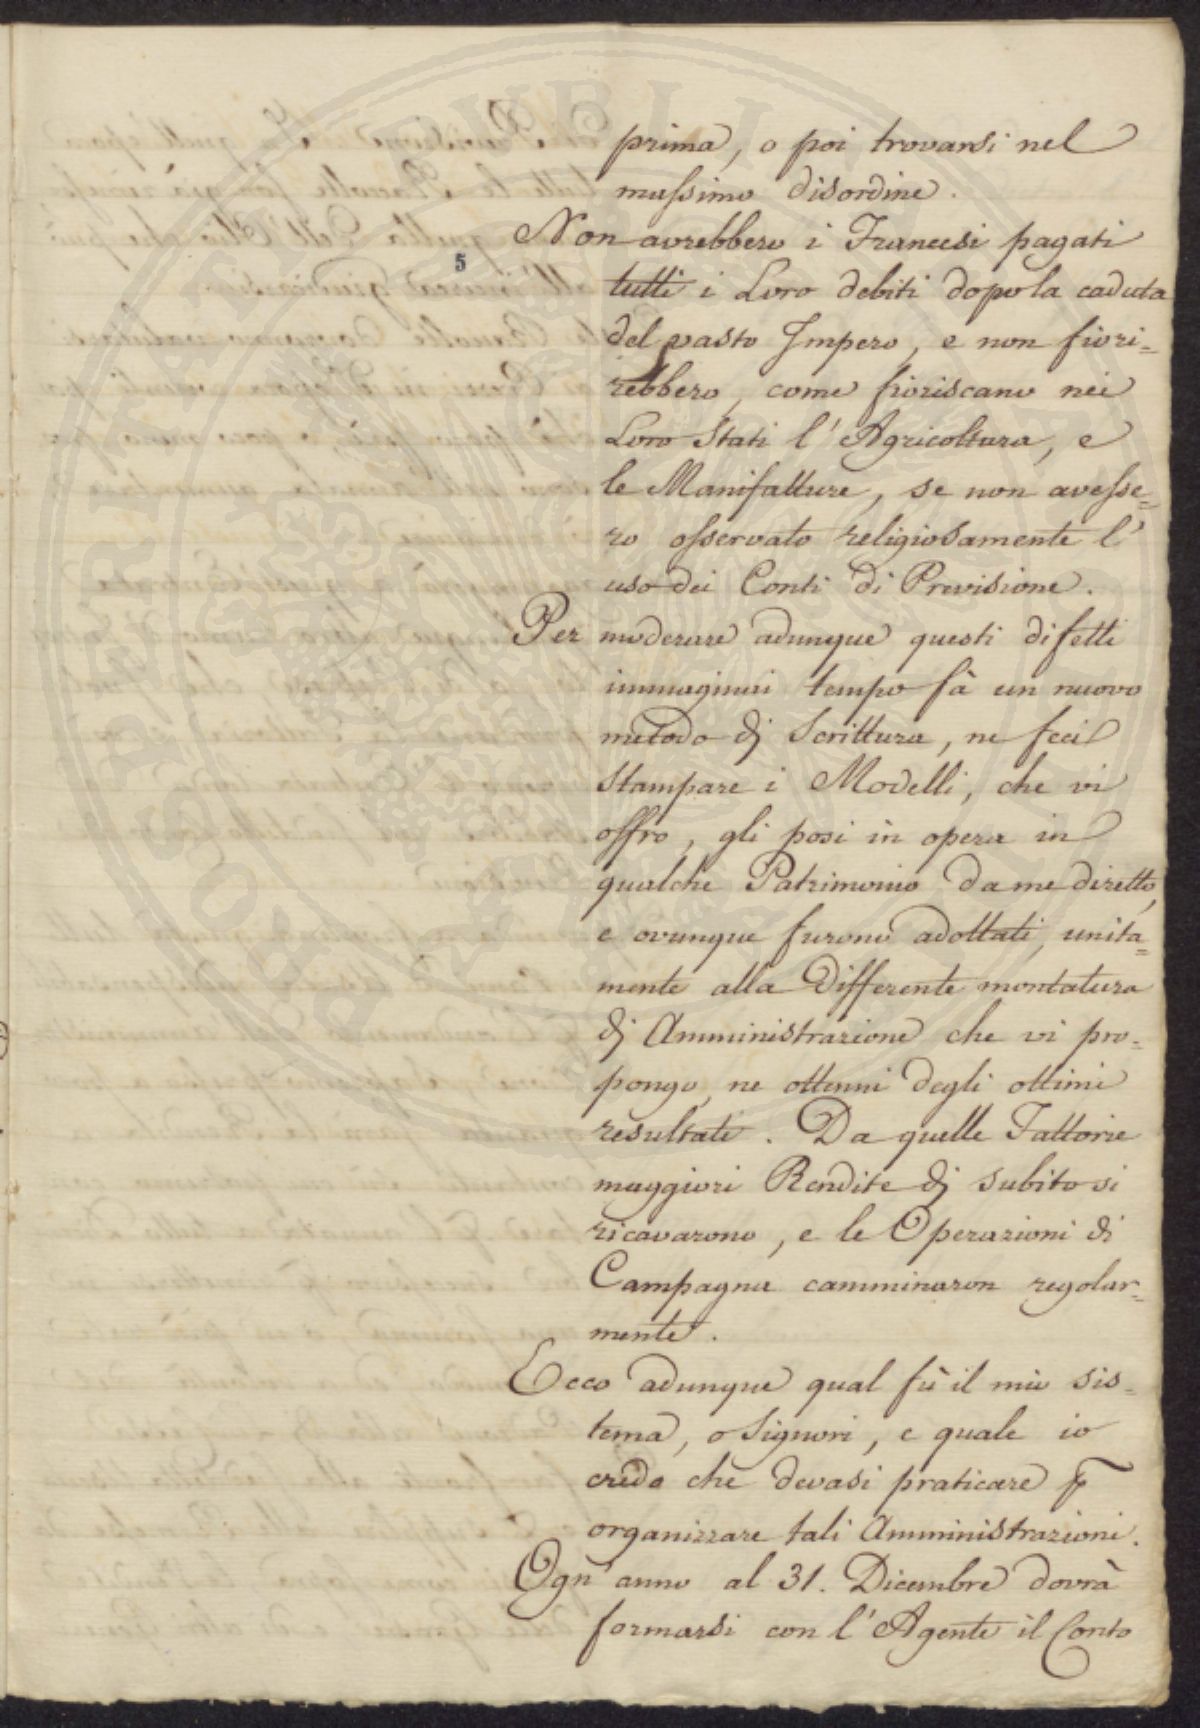 prima, o poi trovarsi nel
massimo disordine.
Non avrebbero i Francesi pagati
5
tutti i Loro debiti dopo la caduta
del vasto Impero, e non fiori=
rebbero, come fioriscano nei
Loro Stati l'Agricoltura, e
le Manifatture, se non avesse=
ro osservato religiosamente l'
uso dei Conti di Previsione.
Per moderare adunque questi difetti
immaginai tempo fà un nuovo
metodo di Scrittura, ne feci
stampare i Modelli, che vi
offro, gli posi in opera in
qualche Patrimonio da me diretto,
e ovunque furono adottati, unita=
mente alla differente montatura
di Amministrazione che vi pro=
pongo, ne ottenni degli ottimi
resultati. Da quelle Fattorie
maggiori Rendite di subito si
ricavarono, e le Operazioni di
Campagna camminaron regolar=
mente.
Ecco adunque qual fù il mio sis=
tema, o Signori, e quale io
credo che devasi praticare p
organizzare tali Amministrazioni.
Ogn'anno al 31. Dicembre dovrà
formarsi con l'Agente il Conto